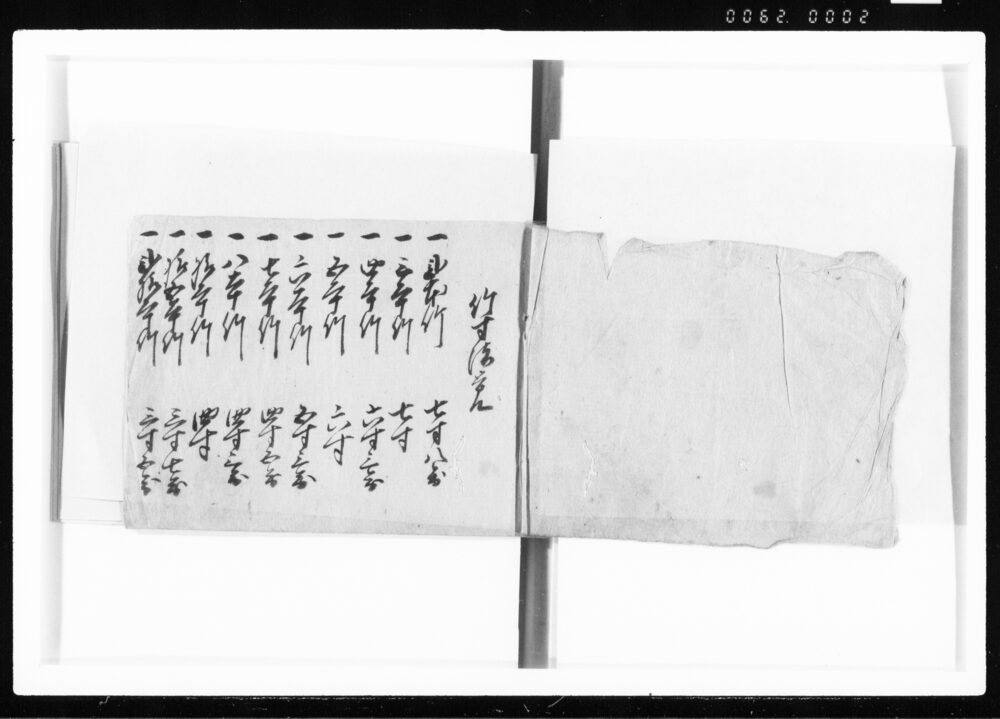 0062. 0002
竹寸法覚
一 弐本竹 七寸八分
一 三本竹 七寸
一 四本竹 六寸三分
一 五本竹 六寸
一 六本竹 五寸三分
一 七本竹 四寸五分
一 八本竹 四寸三分
一 拾本竹 四寸
一 拾五本竹 三寸七分
一 弐拾本竹 三寸五分